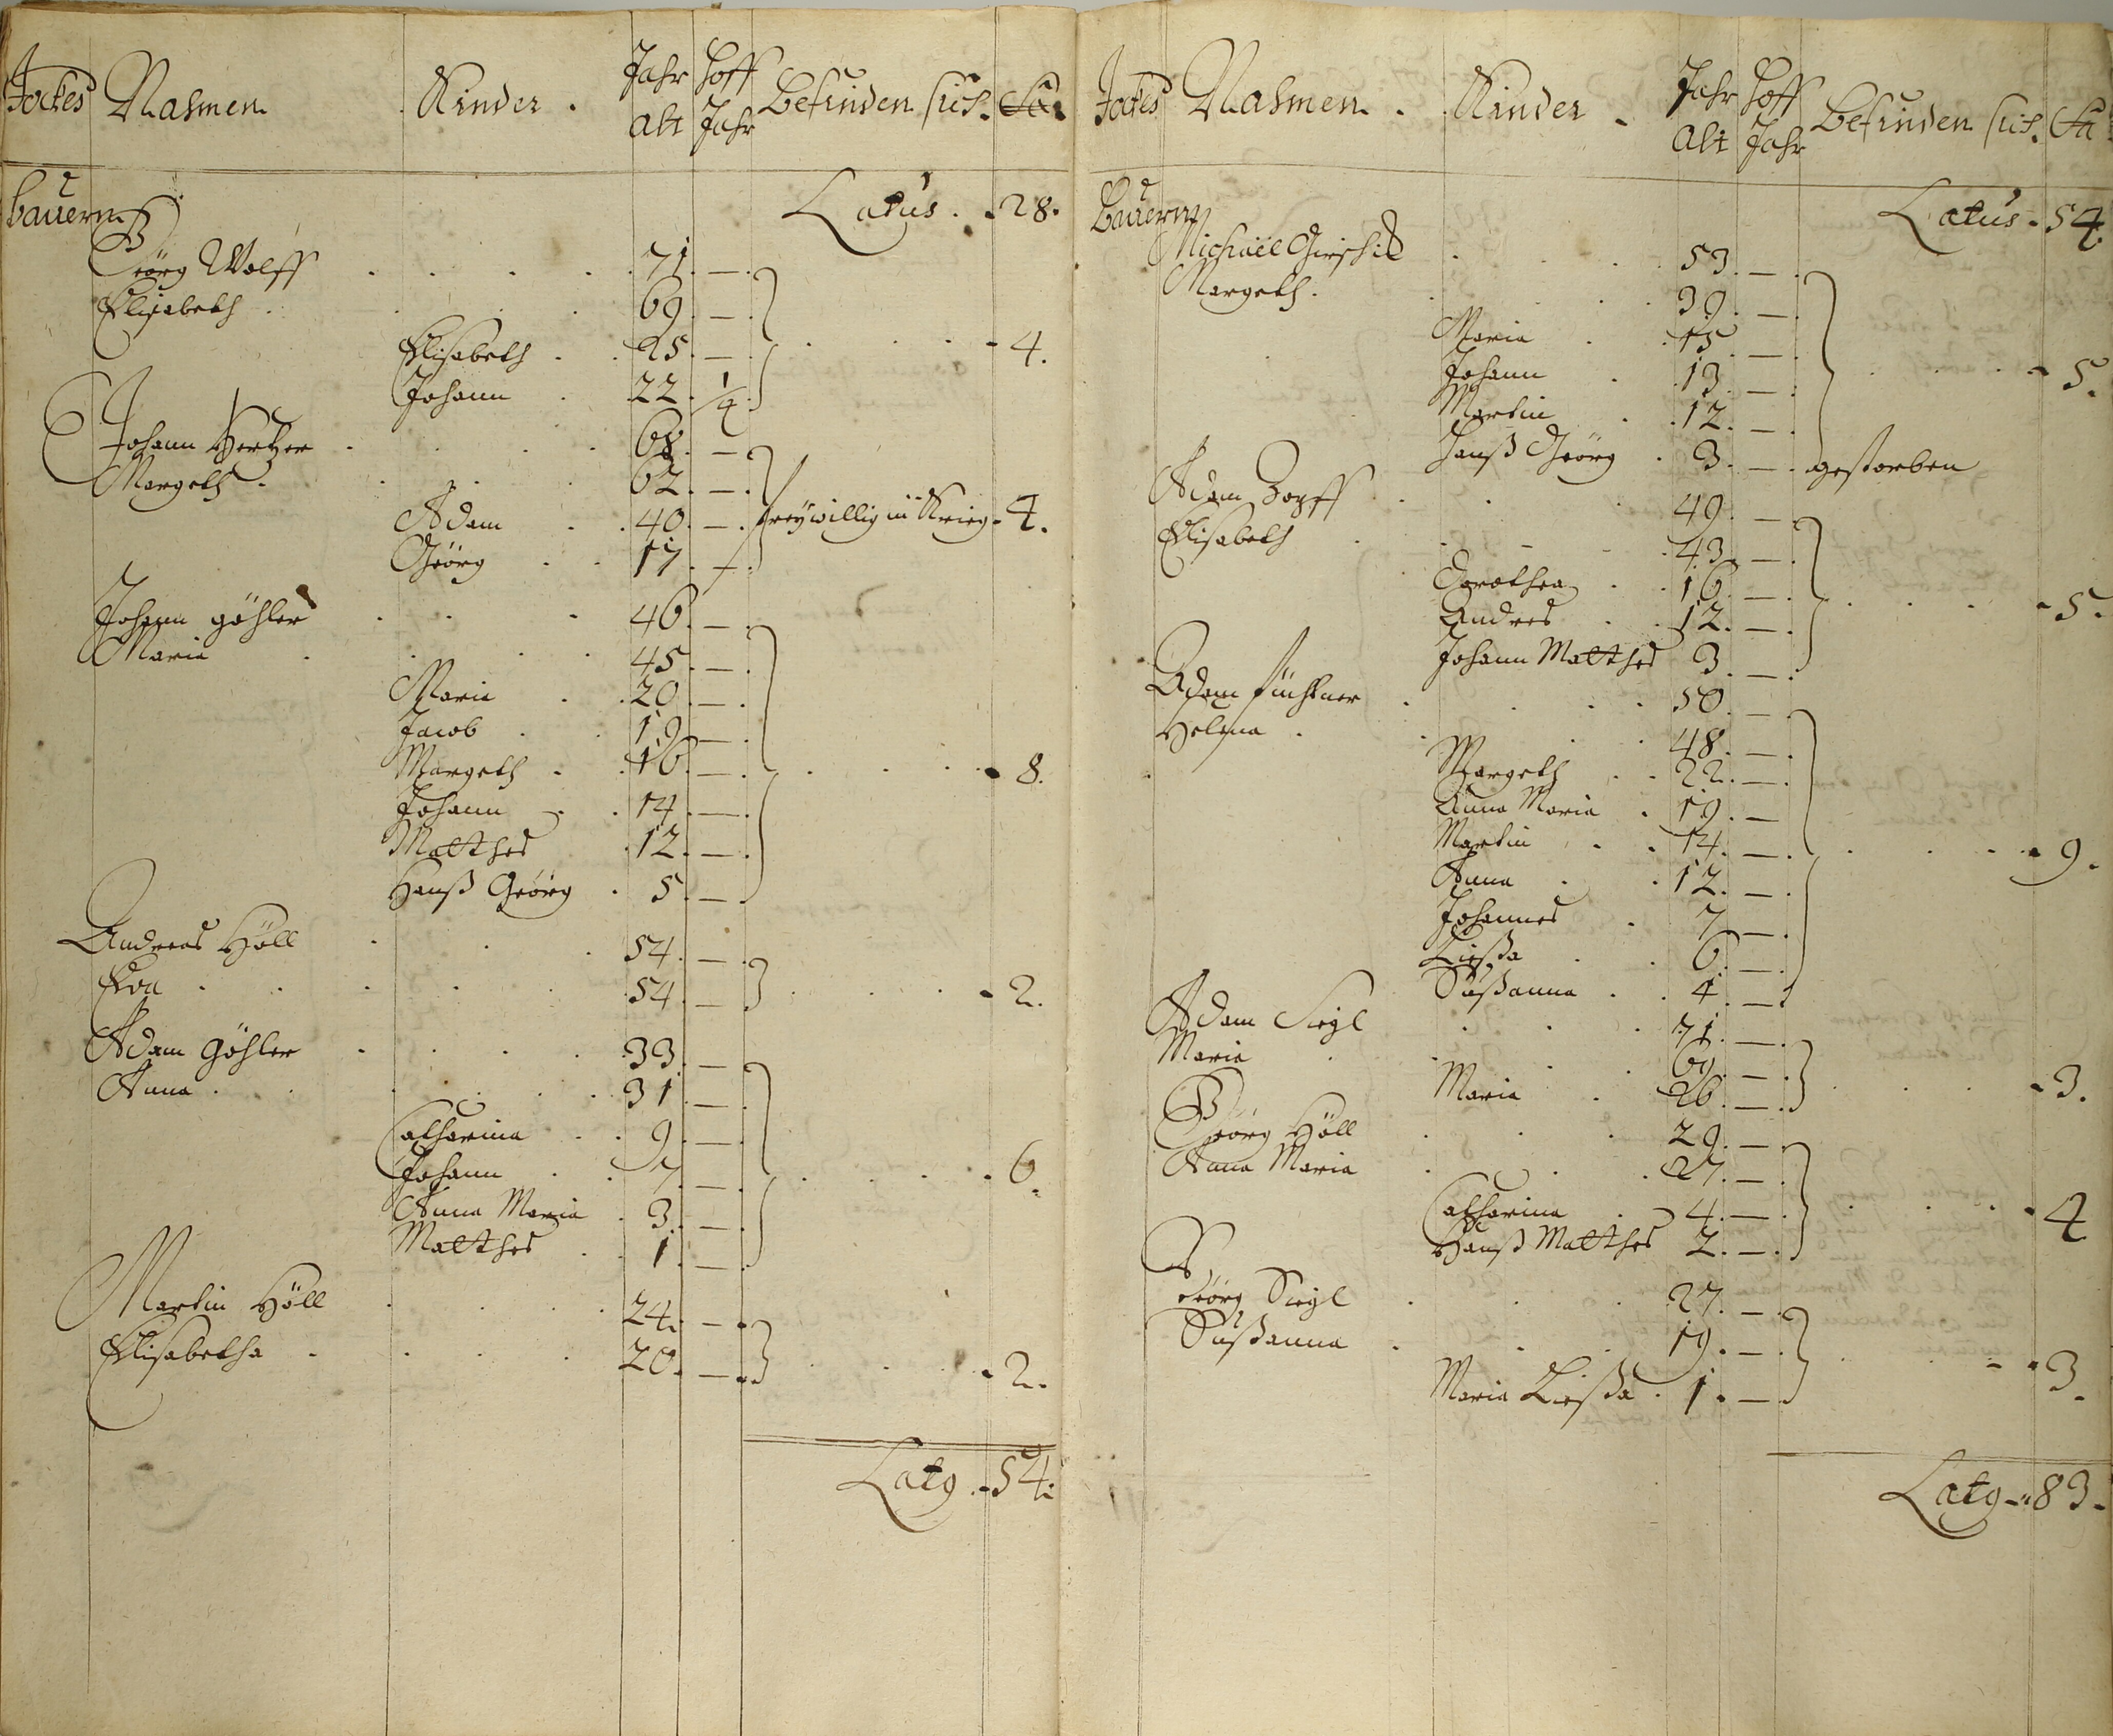 Jockes Nahmen Kinder. Jahr Alt Hoff Jahr Befinden sich. Sa.
bauern
Latus. 28.
Geörg Wolff 71. —
Elisabeth. 69. —
Elisabeth. 25. —
4.
Johann 22. 1/4
Johann Hertzer 68. —
Margeth. 62. —
Adam 40. — freÿwillig in Krieg. 4.
Geörg 17. —
Johann göhler 46. —
Maria 45. —
Maria 20. —
Jacob 19. —
Margeth 16. —
8.
Johann 14. —
Matthes 12. —
Hanß Geörg 5. —
Andreas Höll 54. —
Eva 54. —
2.
Adam Göhler 33. —
Anna. 31. —
Catharina 9. —
Johann 7. —
6.
Anna Maria 3. —
Matthes 1. —
Martin Höll 24. —
Elisabetha 20. —
2.
Latg. 54.
Jockes Nahmen. Kinder. Jahr Alt Hoff Jahr Befinden sich. Sa
Bauern
Latus. 54.
Michael 53. —
Margeth. 39. —
Maria 15. —
Johann 13. —
5.
Martin 12. —
Hanß Geörg 3. — gestorben
Adam Zopff 49. —
Elisabeth 43. —
Dorothea 16. —
Andres 12. —
5.
Johann Matthes 3. —
Adam füchtner 50. —
Helena 48. —
Margeth 22. —
Anna Maria 19. —
Martin 14. —
9.
Anna 12. —
Johannes 7. —
Ließa 6. —
Sußanna 4. —
Adam Siegl 71. —
Maria 69. —
Maria 26. —
3.
Geörg Höll 29. —
Anna Maria 27. —
Catharina 4. —
4
Hanß Matthes 2. —
Geörg Siegl 27. —
Sußanna 19. —
3.
Maria Ließa. 1. —
Latg. 83.